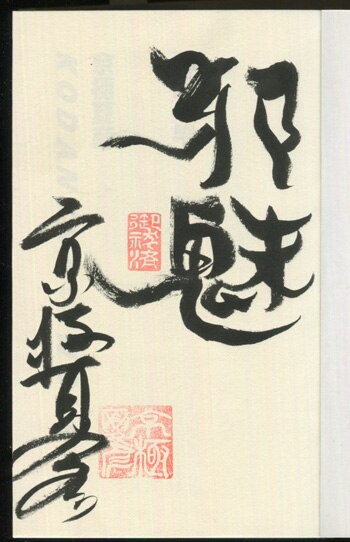 邪魅
御祓済
京極夏彦
京極夏彦